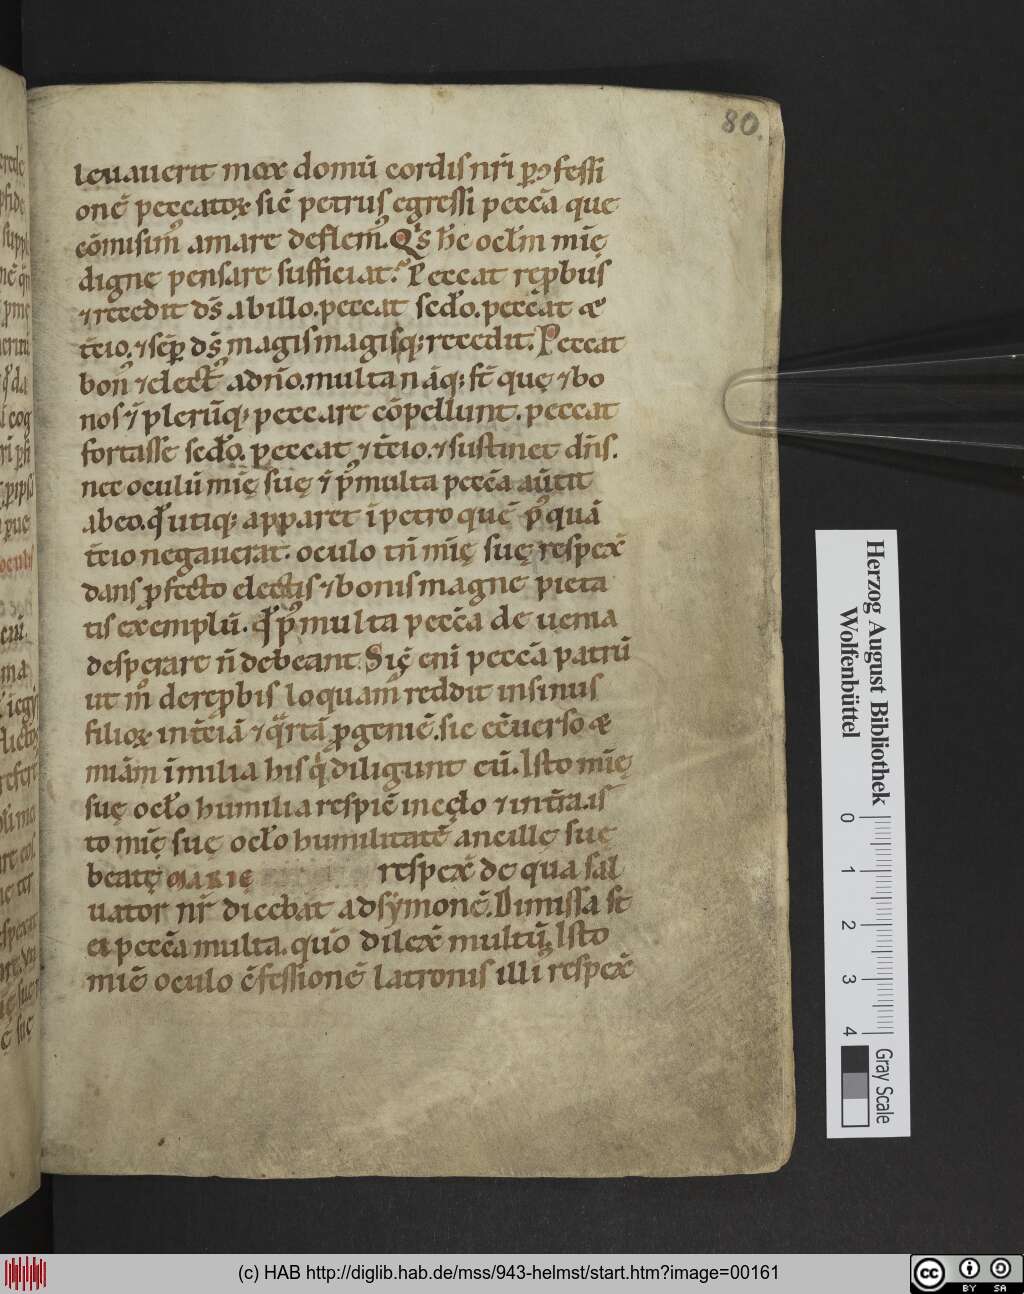 80.
leuauerit mox domū cordis nr̄i ꝓfessi
onē peccatoꝝ sic̄ petrus egressi pecc̄a que
cōmisimꝰ amare deflemꝰ. Qͥs h̄c ocłm mīę
digne pensare sufficiat? Peccat rep̱bus
⁊ recedit dſ̄ ab illo. peccat sedo. peccat æ
t̄cio. ⁊ sēp dſ̄ magis magisq; recedit. Peccat
bonꝰ ⁊ electꝰ ad nr̄o. multa nāq; st̄ que ⁊ bo
nos ⁊ī plerūq; peccare cōpellunt. peccat
fortasse sedo. peccat ⁊ t̄cio. ⁊ sustinet dn̄s.
nec oculū mīę suę ⁊ī pꝰ multa pecc̄a au̅tit
ab eo. qd̄ utiq; apparet ī petro quē pꝰquā
t̄cio negauerat. oculo tn̄ mīę suę respex̄
dans ꝓfecto electis ⁊ bonis magne pieta
tis exemplū. qd̄ pꝰ multa pecc̄a de uenia
desperare n̄ debeant. Sic̄ eni pecc̄a patrū
ut m̊ de rep̱bis loquamꝰ reddit in sinus
filioꝝ in t̄ciā ⁊ qͣrtā ꝓgeniē. sic ec̄uerso æ
miām ī milia his qͥ diligunt eū. Isto mīę
suę ocło humilia respic̄ in cęlo ⁊ in t̄ra. is
to mīę suę ocło humilitatē ancillę suę
beatę MARIĘ respex̄ de qua sal
uator nr̄ dicebat ad symonē. Dimissa st̄
ei pecc̄a multa. quō dilex̄ multū. Isto
miē oculo c̄fessionē latronis illiꝰ respex̄
Herzog August Bibliothek
Wolfenbüttel
0 1 2 3 4
Gray Scale
(c) HAB http://diglib.hab.de/mss/943-helmst/start.htm?image=00161
cc BY SA